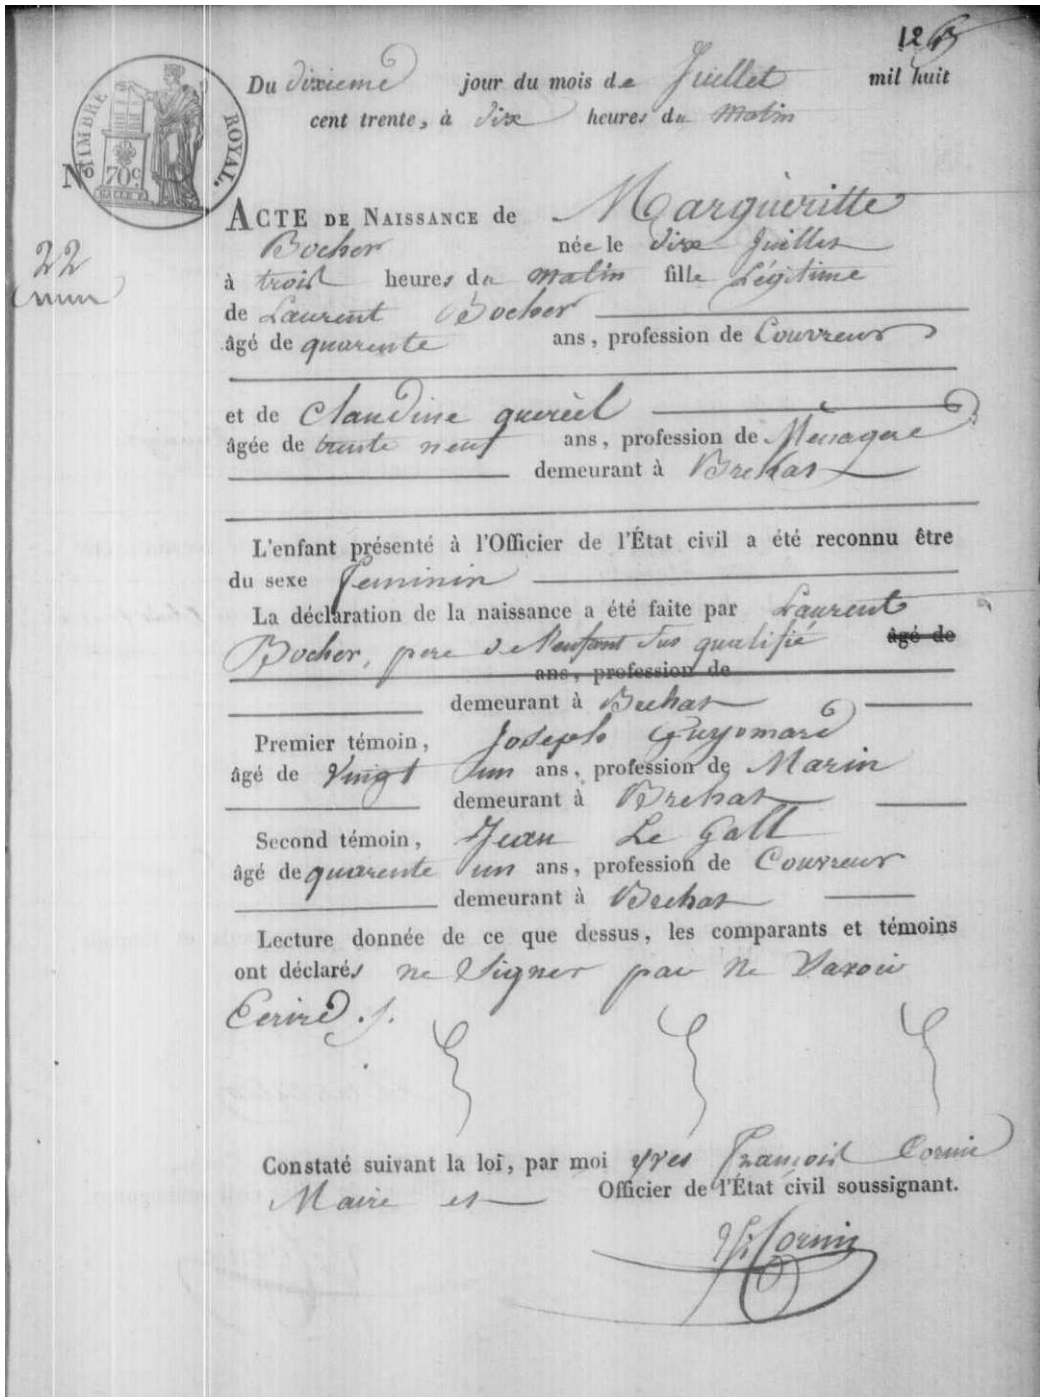 12
Du dixieme jour du mois de Juillet mil huit
cent trente, à dix heures du Matin
TIMBRE ROYAL.
70c
No
22
ACTE DE NAISSANCE de Marguèritte
Bocher née le dix Juillet
à trois heures du matin fille Légitime
de Laurent Bocher
âgé de quarente ans, profession de Couvreur
et de Claudine querèel
âgée de trente neuf ans, profession de Mènagere
demeurant à Brehat
L'enfant présenté à l'Officier de l'État civil a été reconnu être
du sexe Feminin
La déclaration de la naissance a été faite par Laurent
Bocher, pere de l'enfant sus qualifié âgé de
ans, profession de
demeurant à Brehat
Premier témoin, Joseph Guyomard
âgé de Vingt un ans, profession de Marin
demeurant à Brehat
Second témoin, Jean Le Gall
âgé de quarente un ans, profession de Couvreur
demeurant à Brehat
Lecture donnée de ce que dessus, les comparants et témoins
ont déclarés ne Signer pour ne Savoir
Ecrire ./.
Constaté suivant la loi, par moi yves François Cornic
Maire et Officier de l'État civil soussignant.
Cornic